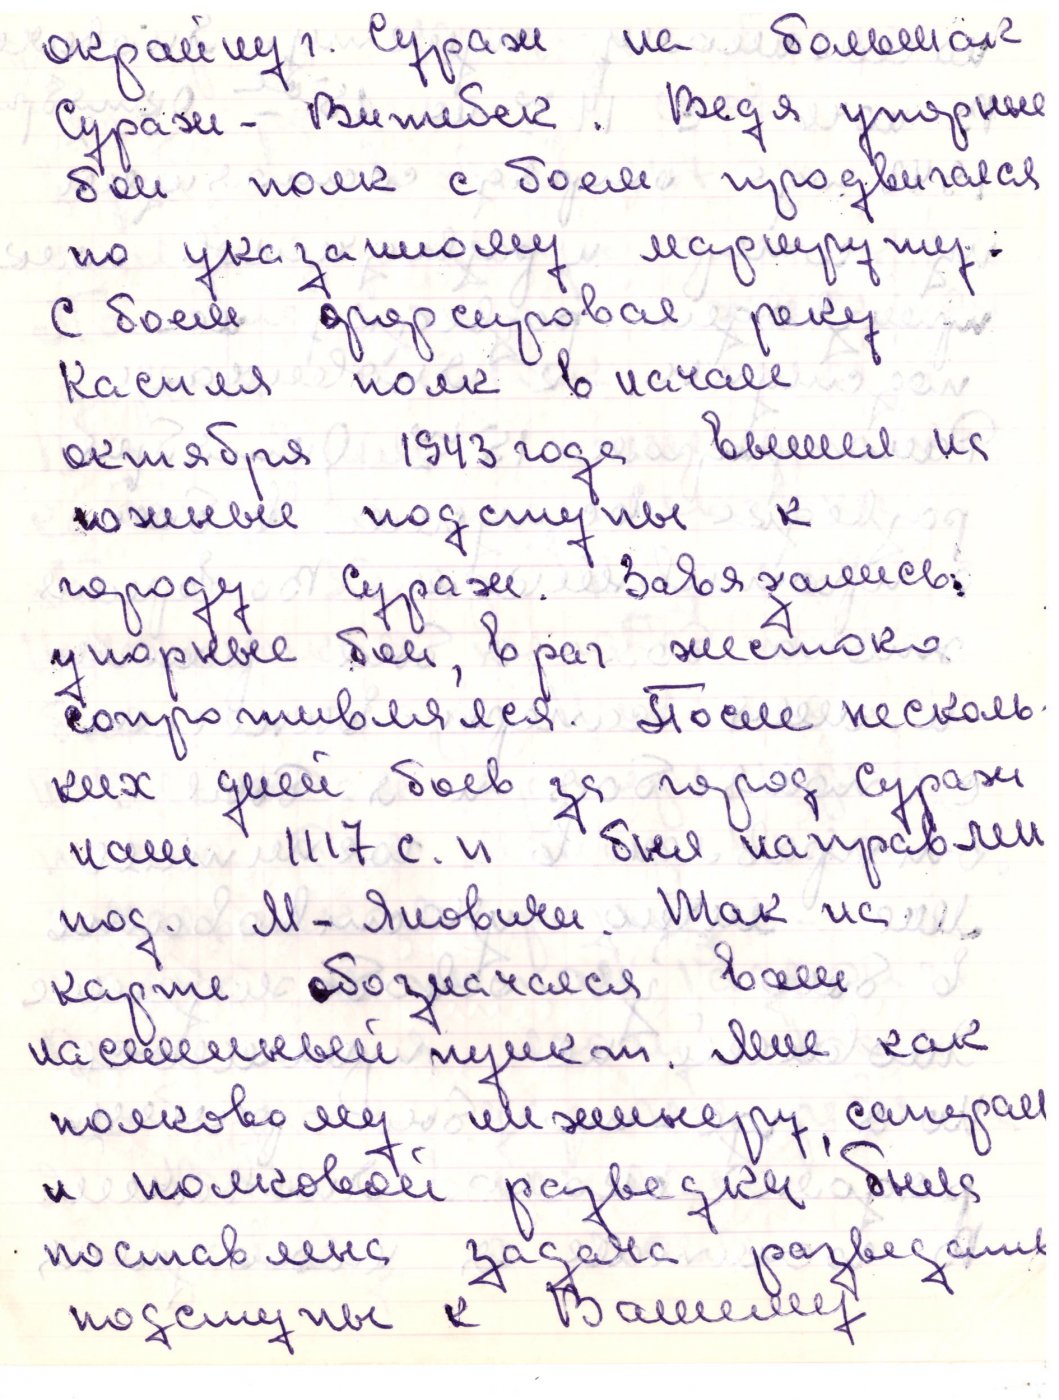 окрайну г. Сураж на большак
Сураж - Витебск. Ведя упорные
бои полк с боем продвигался
по указанному маршруту.
С боем форсировав реку
Касиля полк в начале
октября 1943 года вышел на
южные подступы к
городу Сураж. Завязались
упорные бои, враг жестоко
сопротивлялся. После несколь-
ких дней боев за город Сураж
наш 1117 с.п был направлен
под. М-Яновичи. Так на
карте обозначался ваш
населенный пункт. Мне как
полковому инженеру, саперам
и полковой разведки была
поставлена задача разведать
подступы к Вашему